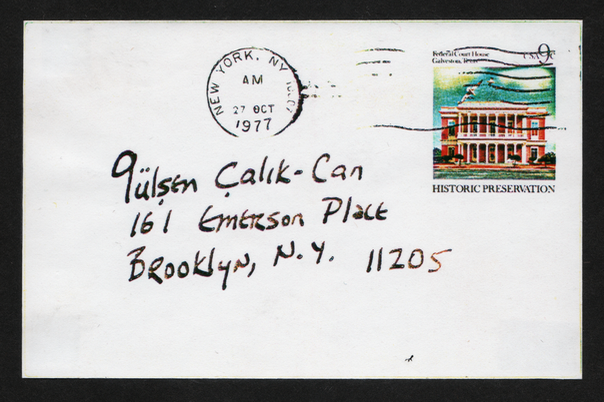 NEW YORK, NY
AM
27 OCT
1977
Federal Court House
Galveston, Texas
USA 9c
HISTORIC PRESERVATION
Gülşen Çalık-Can
161 Emerson Place
Brooklyn, N.Y. 11205